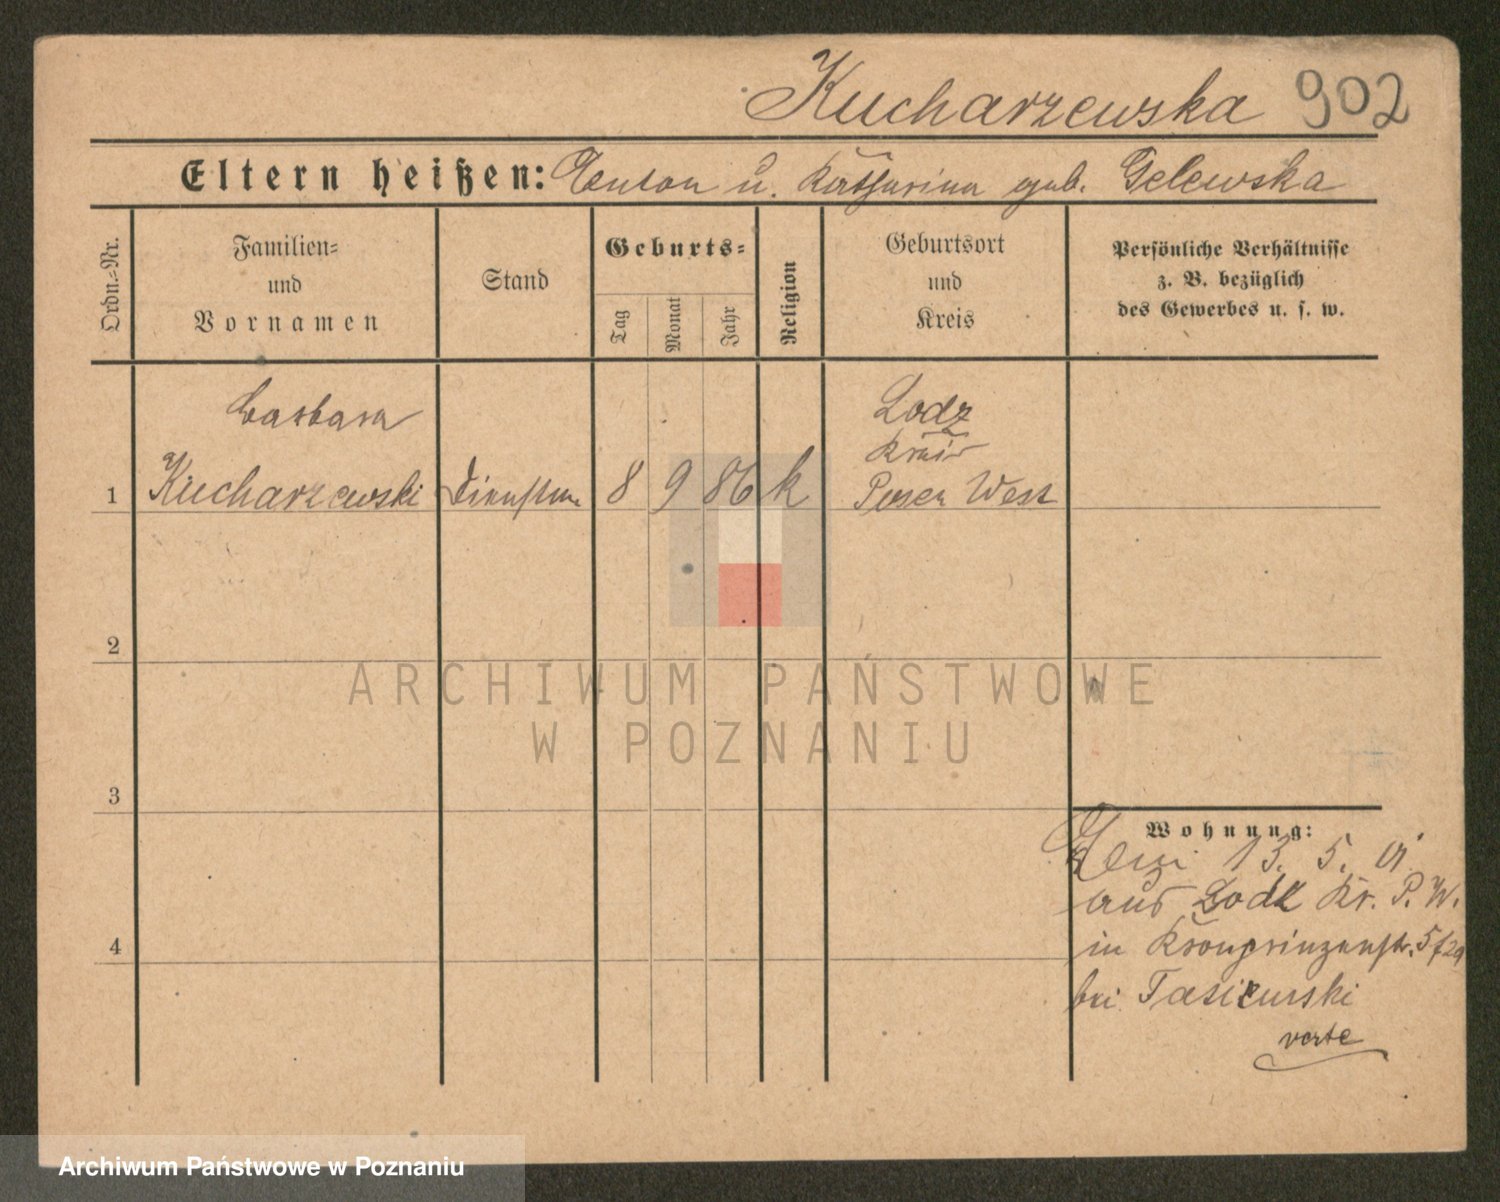 Kucharzewska 902
Eltern heißen: Anton u. Katharina geb. Gelewska
Ordn.-Nr.
Familien-
und
Vornamen
Stand
Geburts-
Tag
Monat
Jahr
Religion
Geburtsort
und
Kreis
Persönliche Verhältnisse
z. B. bezüglich
des Gewerbes u. s. w.
Barbara
Lodz
Kreis
1 Kucharzewski 8 9 86 k Posen West
2
ARCHIWUM PAŃSTWOWE
W POZNANIU
3
Wohnung:
13. 5. 01
4
aus Lodz Kr. P. W.
in Kronprinzenstr.
bei
verte
Archiwum Państwowe w Poznaniu